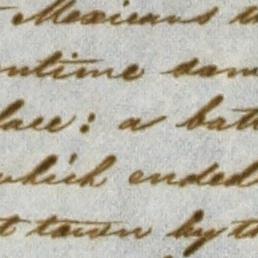 Mexicans th
ntime dam
lace: a batt
which ended
t town by th